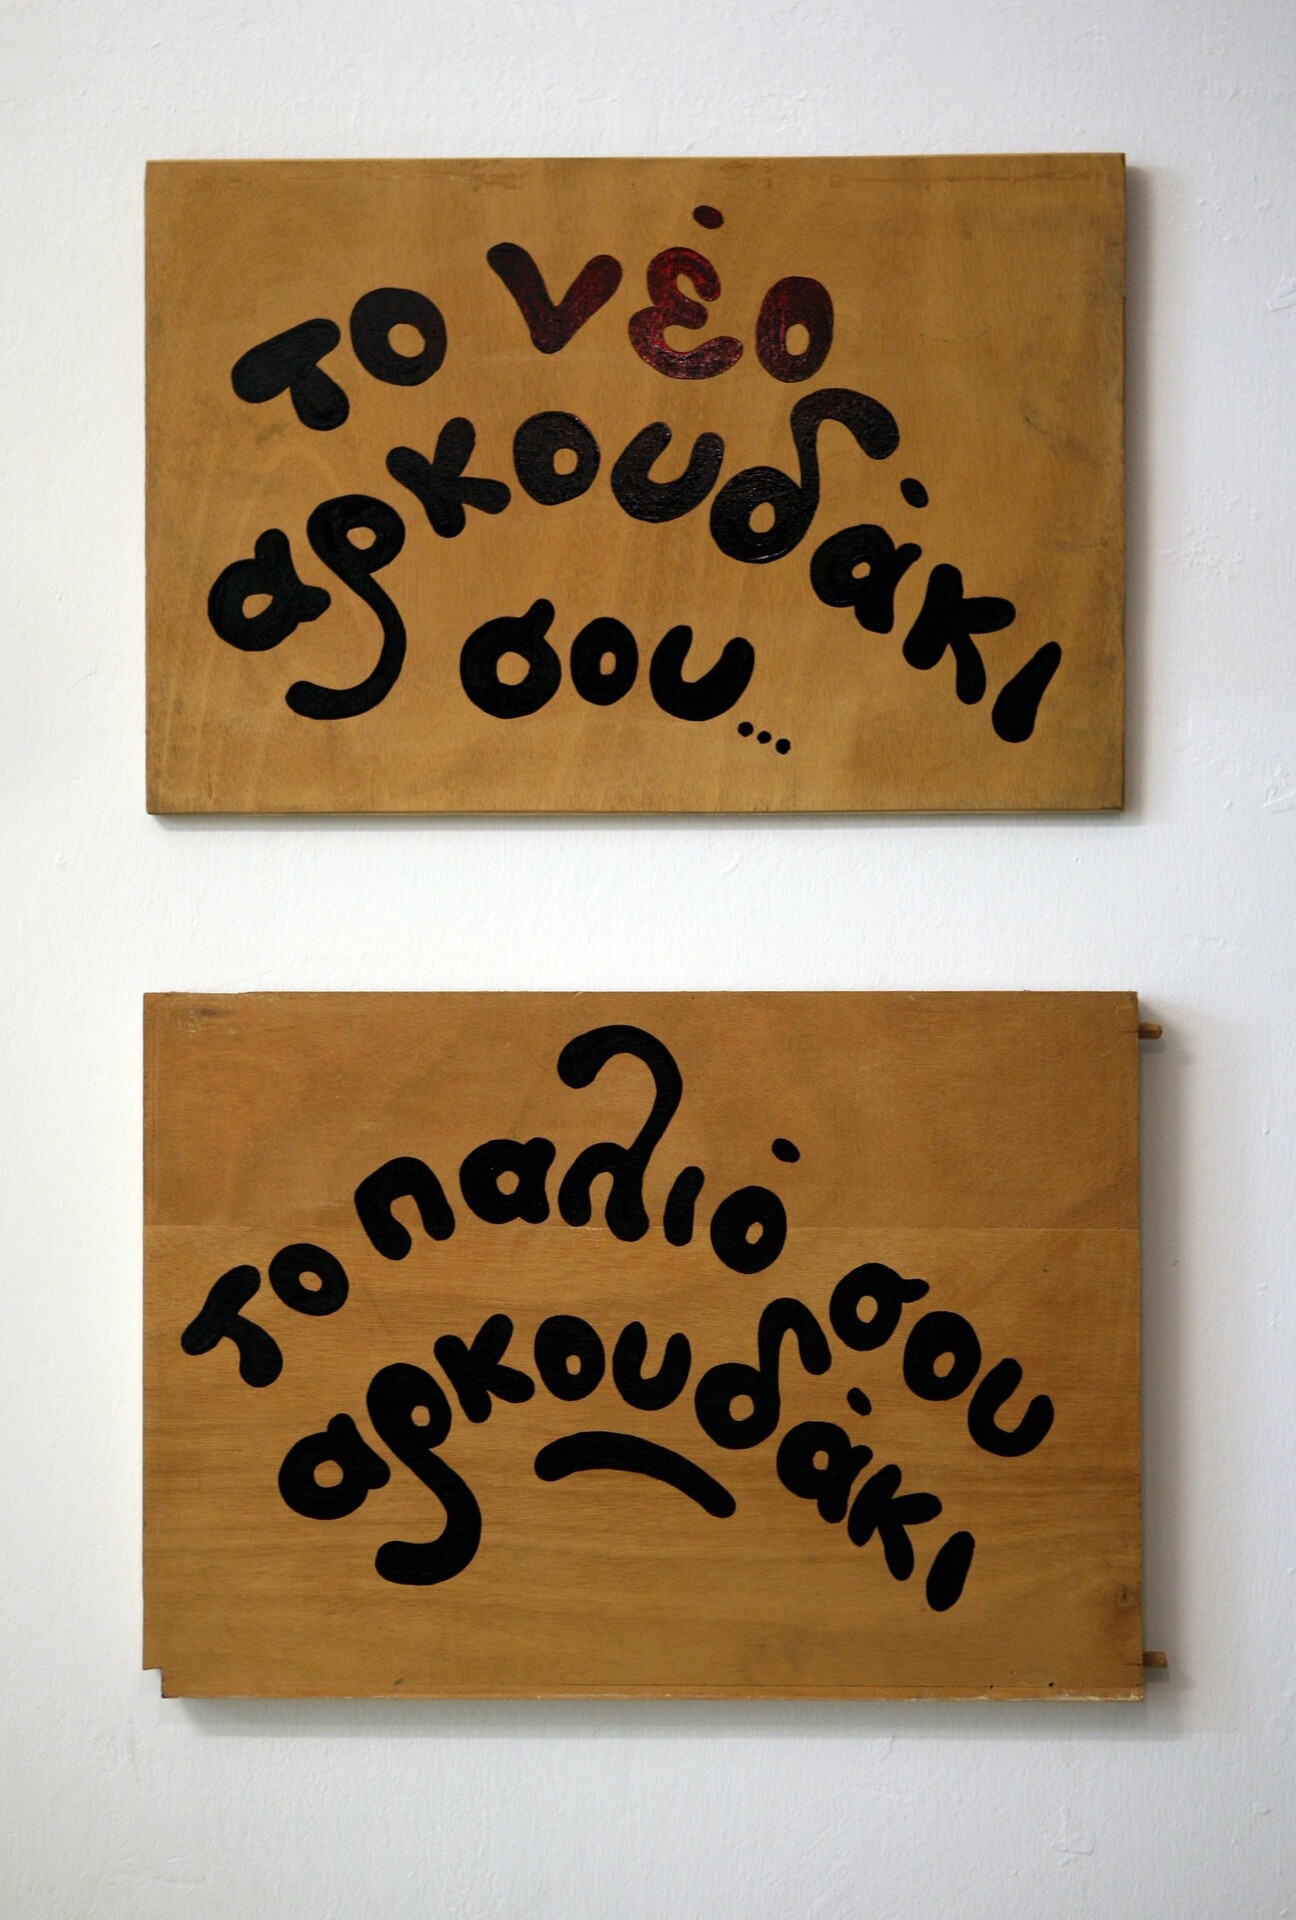 το νέο
αρκουδάκι
σου...
το παλιό σου
αρκουδάκι